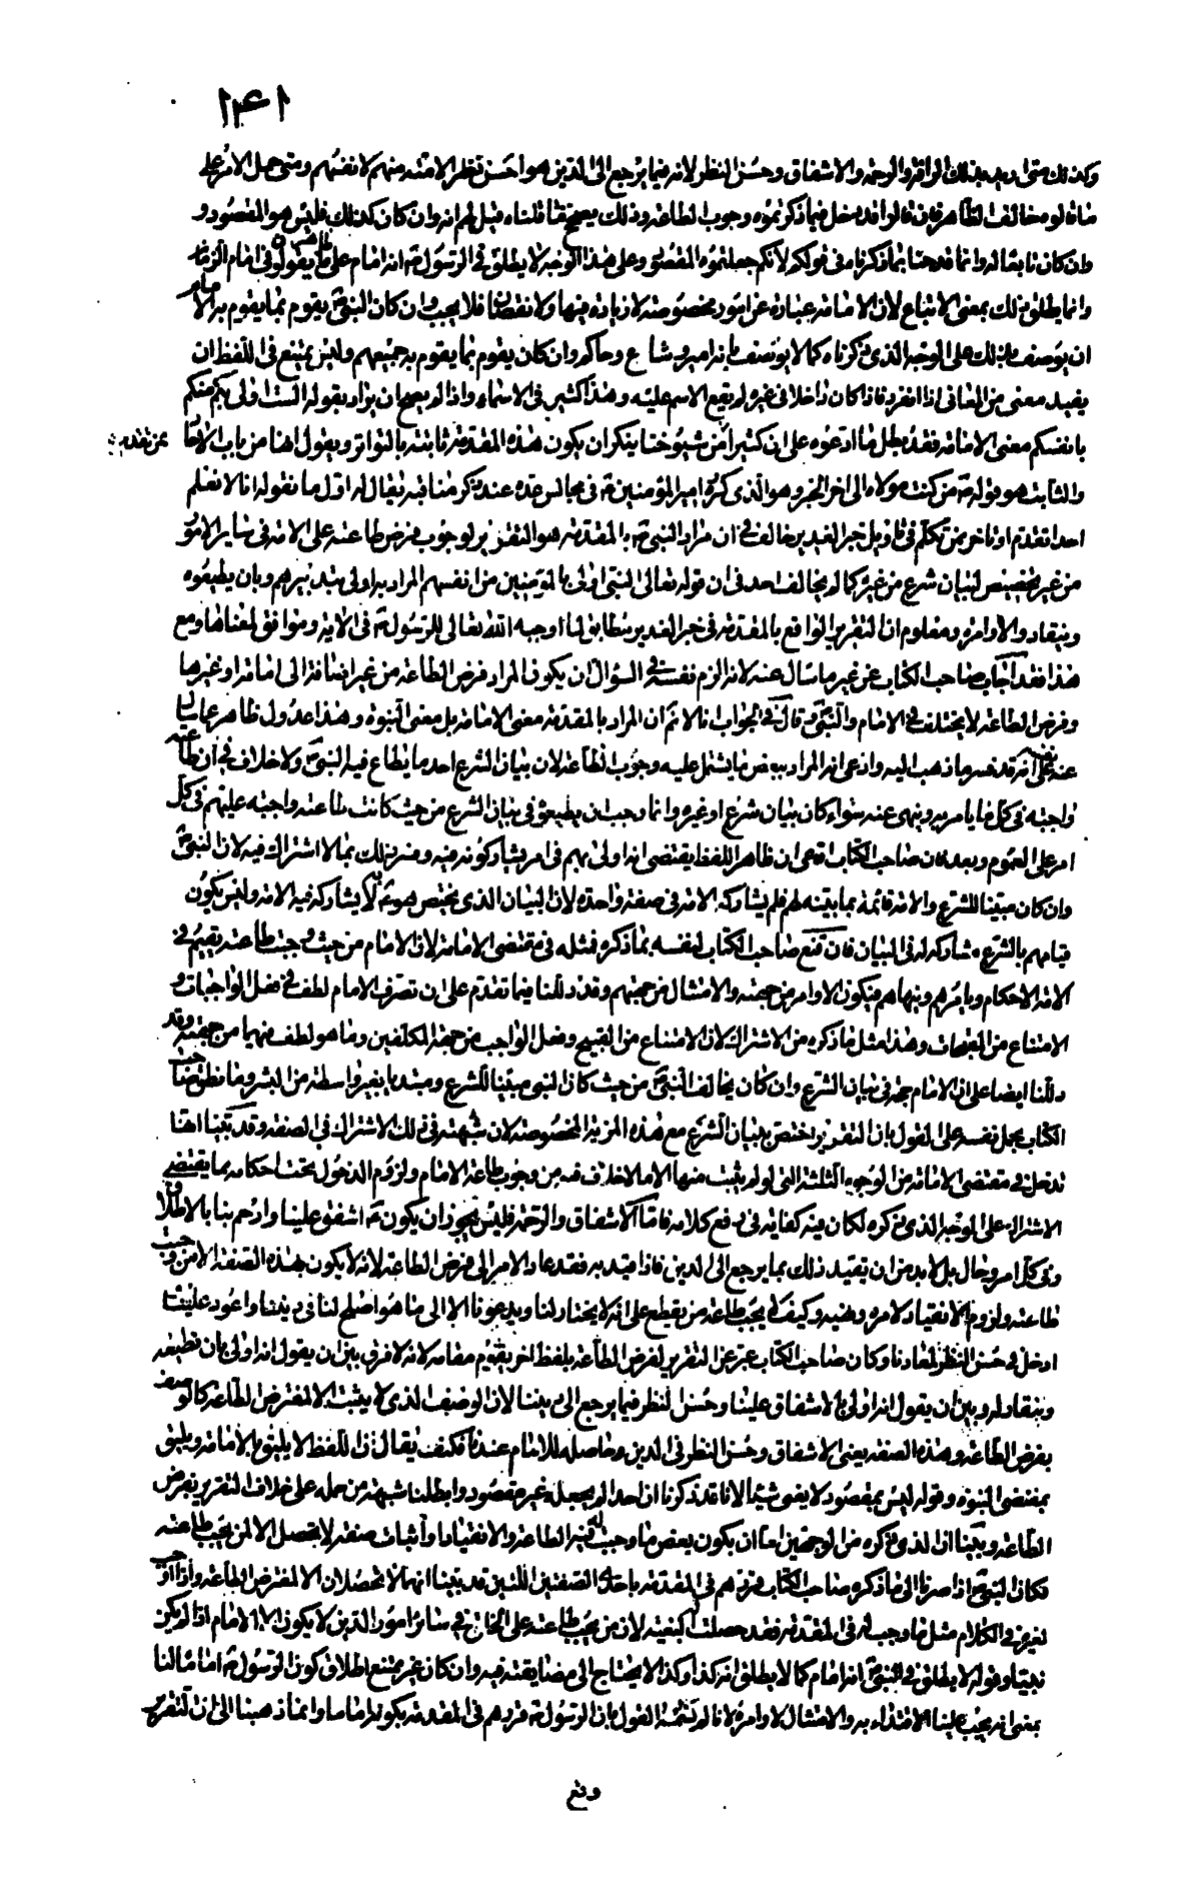 ۱۴۱
وكذلك متى اريد بذلك الرافة والرحمة والاشفاق وحسن النظر لانه فيما يرجع الى الدين هو احسن نظرا لامته منهم لانفسهم ومتى حمل الامر على
ما قالوه خالف الظاهر فان قالوا قد يدخل فيما ذكرتموه وجوب الطاعة وذلك يصحح ما قلناه قيل لهم انه وان كان كذلك فليس هو المقصود و
وان كان تابعا له وانما قدحنا بما ذكرنا في قولكم لانكم جعلتموه المقصود وعلى هذا الوجه لا يطلق في الرسول انه امام على ما يقولون في امام الزمان
وانما يطلق ذلك بمعنى الاتباع لان الامامة عبارة عن امور مخصوصة لا زيادة فيها ولا نقصان فلا يجب وان كان النبي يقوم بما يقوم به الامام
ان يوصف بذلك على الوجه الذي ذكرناه كما لا يوصف بانه امير وساع وحاكم وان كان يقوم بما يقوم به جميعهم وليس يمتنع في اللفظ ان
يفيد معنى من المعاني اذا انفرد فاذا كان داخلا في غيره لم يقع الاسم عليه وهذا كثير في الاسماء واذا لم يصح ان يراد بقوله الست اولى بكم منكم
بانفسكم معنى الامامة فقد بطل ما ادعوه على ان كثيرا من شيوخنا ينكر ان يكون هذه المقدمة ثابتة بالتواتر ويقول انها من باب الاحاد
والثابت هو قوله من كنت مولاه الى اخر الخبر وهو الذي كرره امير المؤمنين في مجالس عدة عند ذكر مناقبه يقال له اول ما نقوله انا لا نعلم
احدا تقدم او تاخر ممن تكلم في تاويل خبر الغدير خالف في ان مراد النبي بالمقدمة هو التقرير لوجوب فرض طاعته على الامة في ساير الامور
من غير تخصيص لبيان شرع من غيره كما لم يخالف احد في ان قوله تعالى النبي اولى بالمؤمنين من انفسهم المراد به اولى بتدبيرهم وبان يطيعوه
وينقادوا لاوامره ومعلوم ان التقرير الواقع بالمقدمة في خبر الغدير مطابق لما اوجبه الله تعالى للرسول في الاية وموافق لمعناها ومع
هذا فقد اجاب صاحب الكتاب عن غير ما سال عنه لانه الزم نفسه في السؤال ان يكون المراد فرض الطاعة من غير اضافة الى امامة او غيرها
وفرض الطاعة لا يختلف في الامام والنبي وقال في الجواب انا لا نم ان المراد بالمقدمة معنى الامامة بل معنى النبوة وهذا عدول ظاهر عما سال
عنه على انه قد فسر ما ذهب اليه وادعى انه المراد ببعض ما يشتمل عليه وجوب الطاعة لان بيان الشرع احد ما يطاع فيه النبي ولا خلاف في ان طاعته
واجبة في كل ما يامر به وينهى عنه سواء كان بيان شرع او غيره وانما وجب ان يطيعوه في بيان الشرع من حيث كانت طاعته واجبة عليهم في كل
امر على العموم وبعد فان صاحب الكتاب ادعى ان ظاهر اللفظ يقتضي انه اولى بهم في امر يشاركونه فيه وفسر ذلك بما لا اشتراك فيه لان النبي
وان كان مبينا للشرع والامة قائمة بما بينه لهم فلم يشاركه الامة في صفة واحدة لان البيان الذي يختص هو به لا يشاركه فيه الامة وليس يكون
قيامهم بالشرع مشاركة له في البيان فان قنع صاحب الكتاب لنفسه بما ذكره فمثله في مقتضى الامامة لان الامام من حيث وجبت طاعته يقيم في
الامة الاحكام ويامرهم وينهاهم فيكون الاوامر من جهته والامتثال من جهتهم وقد دللنا فيما تقدم على ان تصرف الامام لطف في فعل الواجبات و
الامتناع من المقبحات وهذا مثل ما ذكره من الاشتراك لان الامتناع من القبيح وفعل الواجب من جهة المكلفين وما هو لطف فيهما من جهته وقد
دللنا ايضا على ان الامام حجة في بيان الشرع وان كان يخالف النبي من حيث كان النبي مبينا للشرع ومبتديا بغير واسطة من البشر وما نظن صاحب
الكتاب يحمل نفسه على القول بان التقرير اختص ببيان الشرع مع هذه المزية المخصوصة لان شبهته في ذلك الاشتراك في الصفة وقد بينا انها
تدخل في مقتضى الامامة من الوجوه الثلثة التي لو لم يثبت منها الا ما لا خلاف فيه من وجوب طاعة الامام ولزوم الدخول تحت احكامه بما يقتضي
الاشتراك على الوجه الذي ذكره لكان فيه كفاية في دفع كلامه فاما الاشفاق والرحمة فليس يجوز ان يكون اشفق علينا وارحم بنا بالاطلاق
وفي كل امر وحال بل لا بد من ان يقيد ذلك بما يرجع الى الدين فاذا قيد به فقد عاد الامر الى فرض الطاعة لانه لا يكون بهذه الصفة الا من وجبت
طاعته ولزوم الانقياد لامره ونهيه وكيف لا يجب طاعة من يقطع على انه لا يختار لنا ويدعونا الا الى ما هو اصلح لنا في ديننا واعود علينا
ادخل في حسن النظر لمعادنا وكان صاحب الكتاب عبر عن التقرير لفرض الطاعة بلفظ اخر يقوم مقامه لانه لا فرق بين ان يقول انه اولى بان نطيعه
وينقاد له وبين ان يقول انه اولى بالاشفاق علينا وحسن النظر فيما يرجع الى ديننا لان الوصف الذي لا يثبت الا لمفترض الطاعة كالوصف
بفرض الطاعة وهذه الصفة يعني الاشفاق وحسن النظر في الدين وحاصله للامام عندنا فكيف يقال ان اللفظ لا يليق بالامامة ويليق
بمقتضى النبوة وقوله ليس بمقصود لا يغني شيئا لانا قد ذكرنا ان احدا لم يجعله غير مقصود وابطلنا شبهة من حمله على خلاف التقرير بفرض
الطاعة وبينا ان الذي ذكره من الوجهين اما ان يكون بعض ما وجبت فيه الطاعة والانقياد او اثبات صفة لا يحصل الا لمن يجب طاعته
فكان النبي اذا صرنا الى ما ذكره صاحب الكتاب قررهم في المقدمة باحدى الصفتين اللتين قد بينا انهما لا تحصلان الا لمفترض الطاعة واذا اوجب
لغيره في الكلام مثل ما وجب له في المقدمة فقد حصلت البغية لان من يجب طاعته على الخلق في سائر امور الدين لا يكون الا الامام اذا لم يكن
نبيا وقوله لا يطلق في النبي انه امام كما لا يطلق انه كذا وكذا لا يحتاج الى مضايقته فيه وان كان غير ممتنع اطلاق كون الرسول اماما لنا
بمعنى انه يجب علينا الاقتداء به والامتثال لاوامره لانا لم القول بان الرسول قررهم في المقدمة بكونه اماما وانما ذهبنا الى ان التقرير
وقع